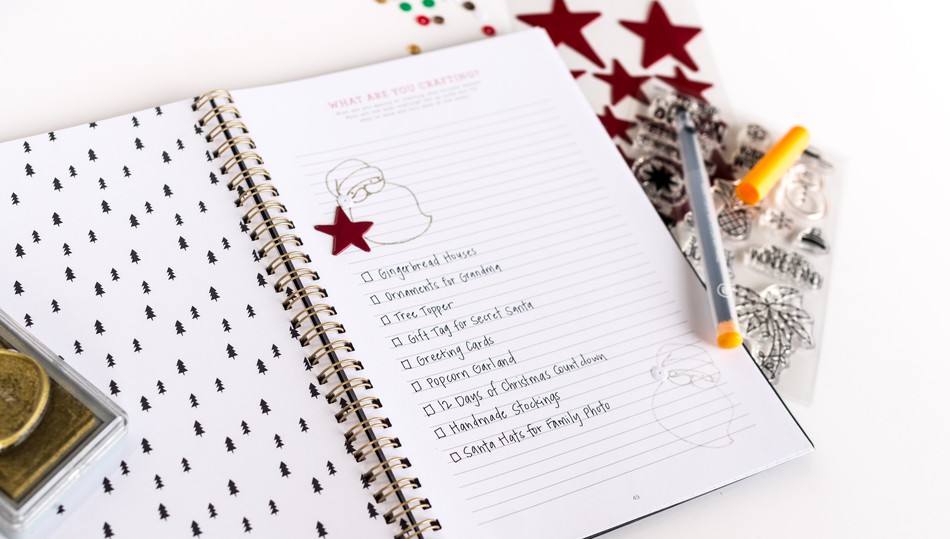 WHAT ARE YOU CRAFTING?
Gingerbread Houses
Ornaments for Grandma
Tree Topper
Gift Tag for Secret Santa
Greeting Cards
Popcorn Garland
12 Days of Christmas Countdown
Handmade Stockings
Santa Hats for Family Photo
49